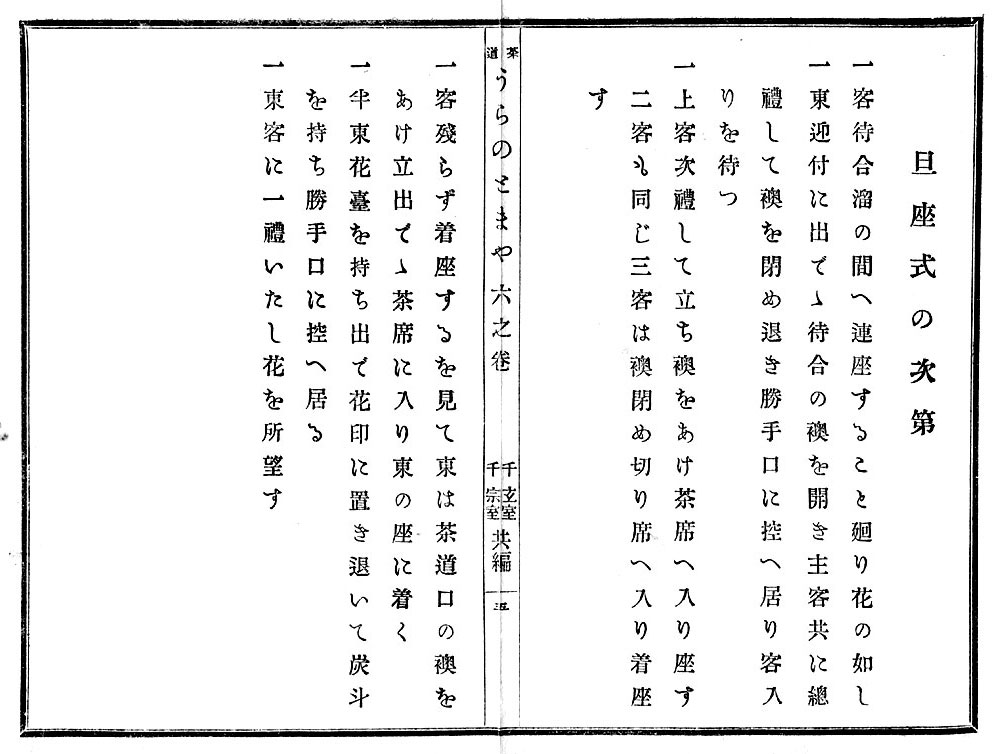 旦座式の次第
一客待合溜の間へ連座することと廻り花の如し
一東迎付に出でゝ待合の襖を開き主客共に總
禮して襖を閉め退き勝手口に控へ居り客入
りを待つ
一上客次禮して立ち襖をあけ茶席へ入り座す
二客も同じ三客は襖閉め切り席へ入り着座
す
茶道 うらのとまや六之卷 千玄室 千宗室 共編 五
一客殘らず着座するを見て東は茶道口の襖を
あけ立出でゝ茶席に入り東の座に着く
一半東花臺を持ち出で花印に置き退いて炭斗
を持ち勝手口に控へ居る
一東客に一禮いたし花を所望す